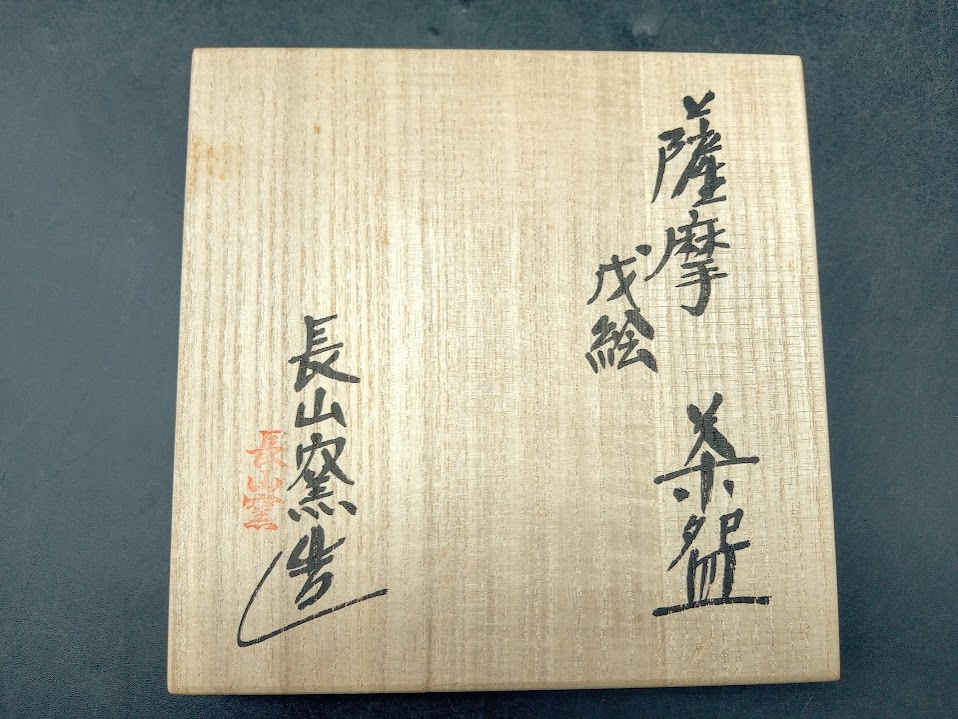 薩摩 茶盌
戌絵
長山窯造
長山窯